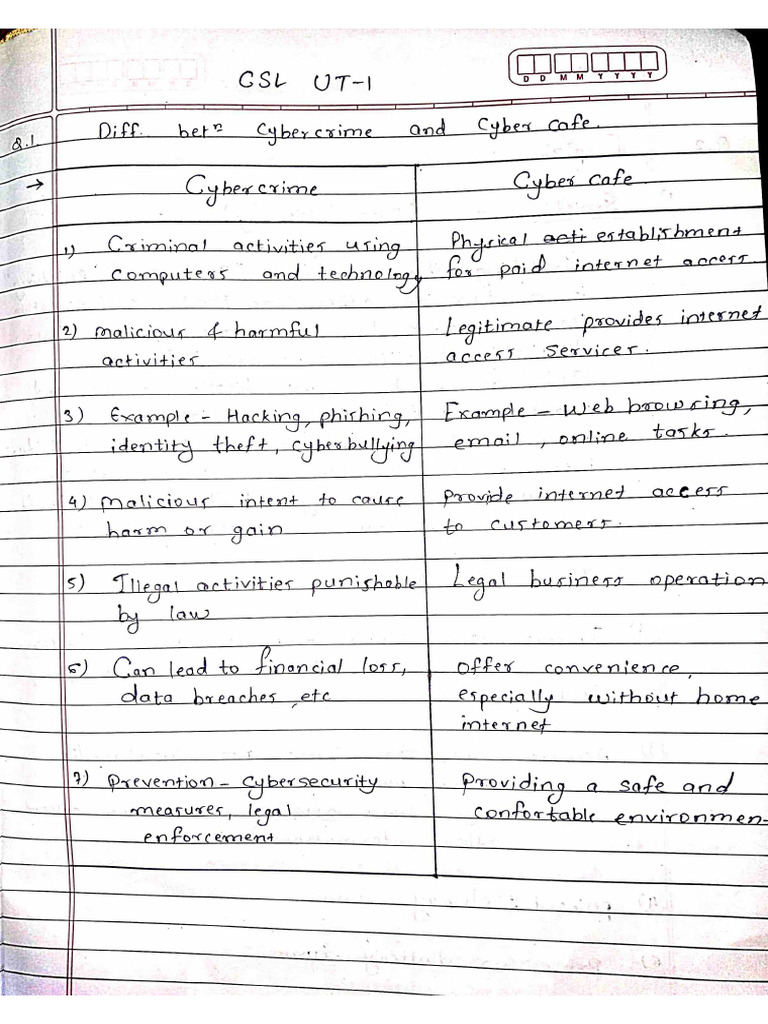 CSL UT-1
D D M M Y Y Y Y
Q.1. Diff. betn Cybercrime and Cyber cafe.
→ Cybercrime Cyber cafe
1) Criminal activities using Physical acti establishment
computers and technology for paid internet access
2) malicious & harmful Legitimate provides internet
activities access services.
3) Example - Hacking, phishing, Example - Web browsing,
identity theft, cyberbullying email, online tasks.
4) malicious intent to cause provide internet access
harm or gain to customers.
5) Illegal activities punishable Legal business operation
by law
6) Can lead to financial loss, offer convenience,
data breaches, etc especially without home
internet
7) Prevention - cybersecurity Providing a safe and
measures, legal confortable environmen-
enforcement